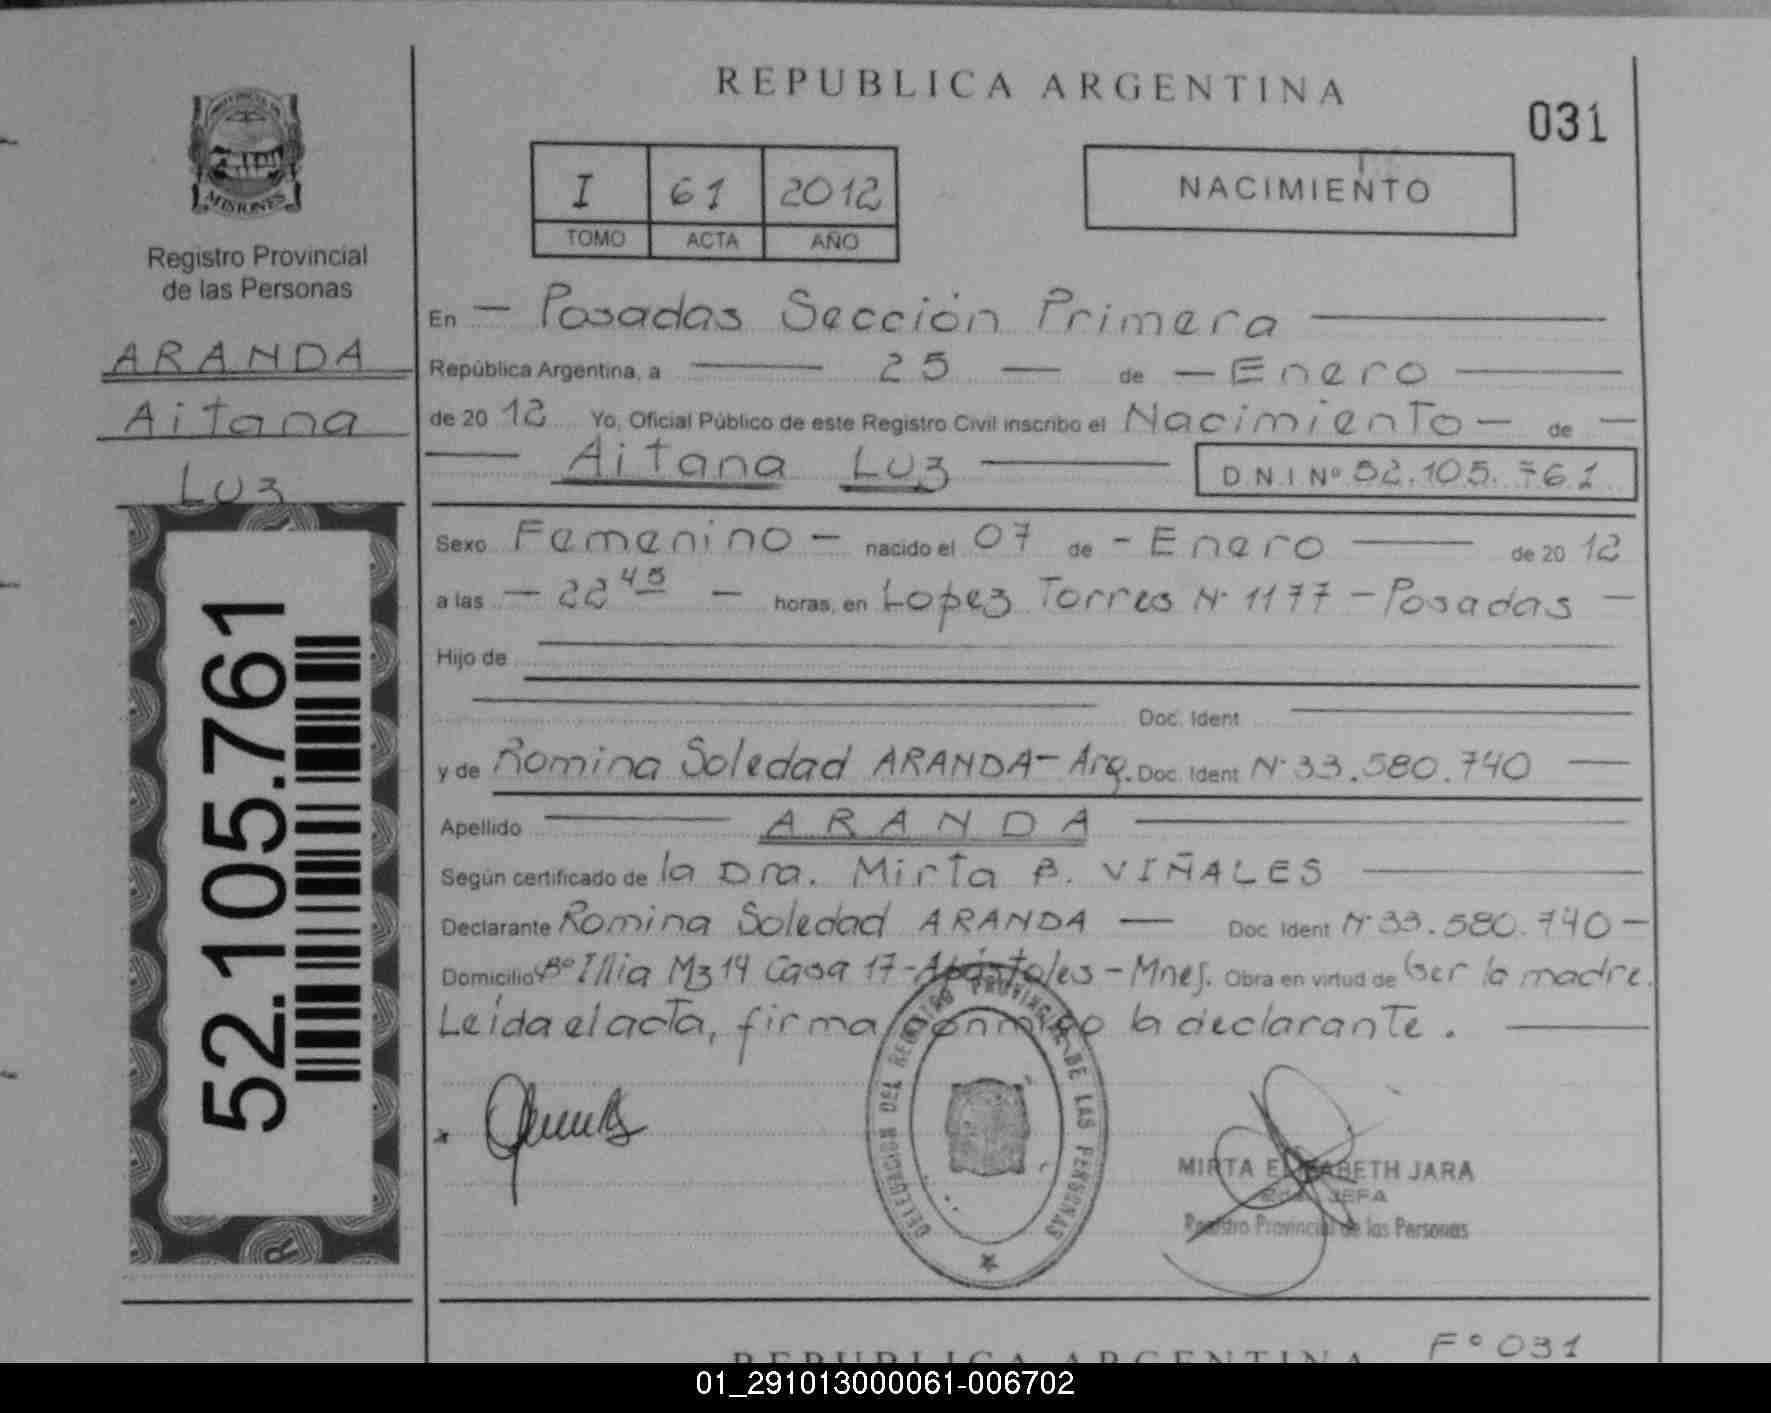 REPUBLICA ARGENTINA
031
PROVINCIA DE
MISIONES
Registro Provincial
de las Personas
ARANDA
Aitana
Luz
52.105.761
I 61 2012
TOMO ACTA AÑO
NACIMIENTO
En - Posadas Sección Primera
República Argentina, a 25 de - Enero
de 20 12 Yo, Oficial Público de este Registro Civil inscribo el Nacimiento - de -
Aitana Luz D.N.I Nº 52.105.761
Sexo Femenino - nacido el 07 de - Enero de 20 12
a las - 22 45 - horas, en Lopez Torres Nº 1177 - Posadas -
Hijo de
Doc. Ident
y de Romina Soledad ARANDA - Arg. Doc. Ident Nº 33.580.740
Apellido ARANDA
Según certificado de la Dra. Mirta B. VIÑALES
Declarante Romina Soledad ARANDA - Doc. Ident Nº 33.580.740 -
Domicilio Bº Illia Mz 14 Casa 17 - Apóstoles - Mnes. Obra en virtud de ser la madre.
Leída el acta, firma conmigo la declarante.
DELEGACION DEL REGISTRO PROVINCIAL DE LAS PERSONAS
MIRTA ELISABETH JARA
JEFA
Registro Provincial de las Personas
REPUBLICA ARGENTINA
Fº 031
01_291013000061-006702